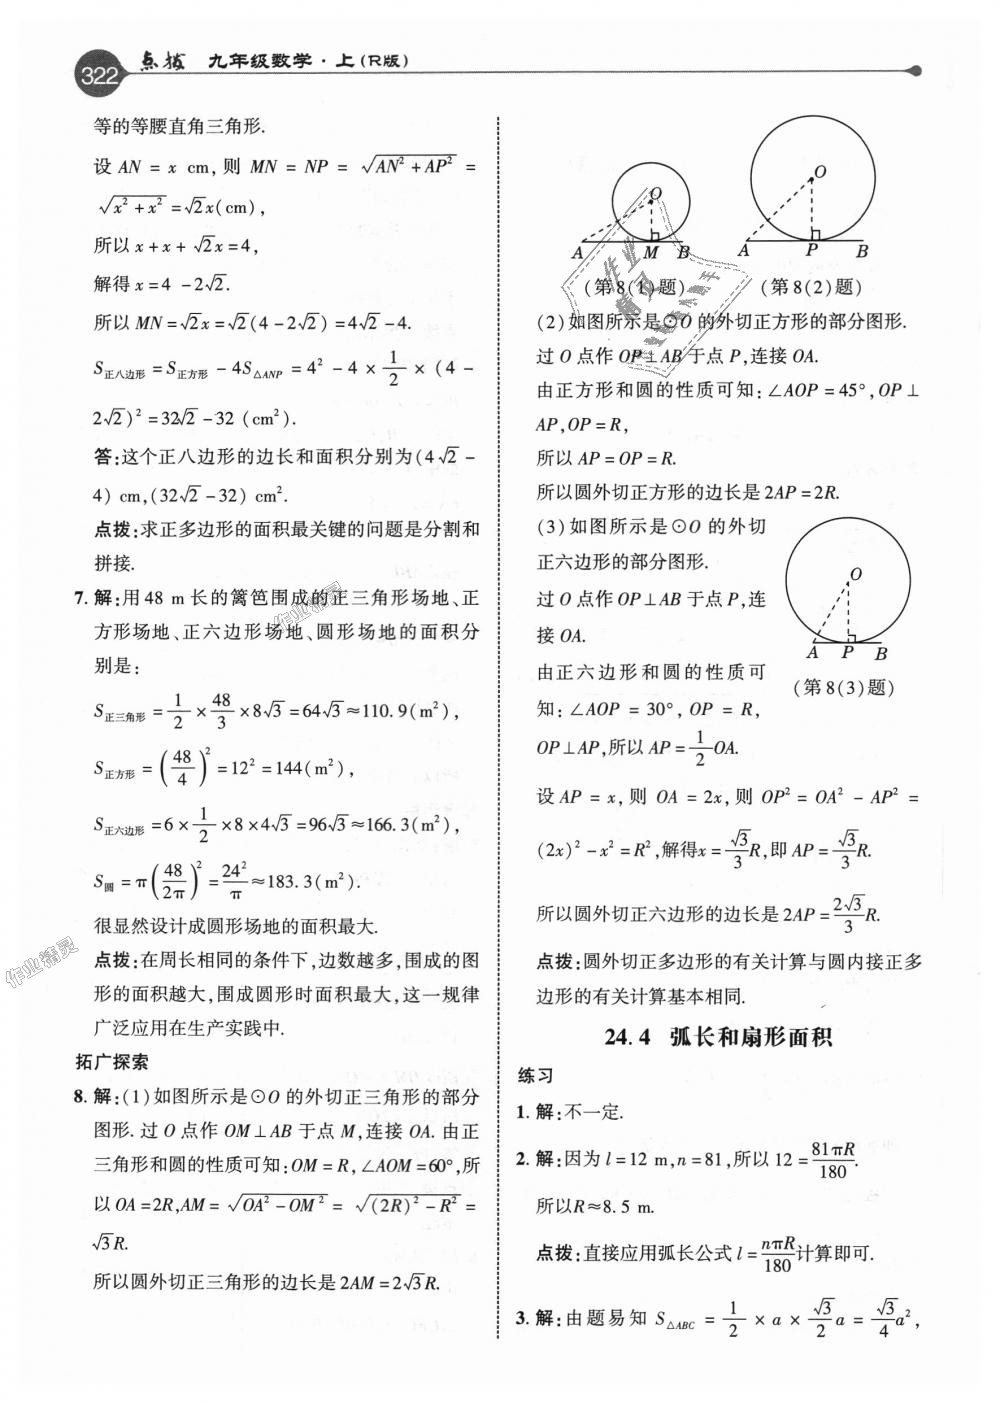 322 点拨 九年级数学·上(R版)
等的等腰直角三角形.
设 AN = x cm, 则 MN = NP = √(AN² + AP²) =
√(x² + x²) = √2x(cm),
所以 x + x + √2x = 4,
解得 x = 4 - 2√2.
所以 MN = √2x = √2(4 - 2√2) = 4√2 - 4.
S正八边形 = S正方形 - 4S△ANP = 4² - 4 × 1/2 × (4 -
2√2)² = 32√2 - 32 (cm²).
答:这个正八边形的边长和面积分别为(4√2 -
4) cm,(32√2 - 32) cm².
点拨:求正多边形的面积最关键的问题是分割和
拼接.
7. 解:用 48 m 长的篱笆围成的正三角形场地、正
方形场地、正六边形场地、圆形场地的面积分
别是:
S正三角形 = 1/2 × 48/3 × 8√3 = 64√3 ≈ 110.9(m²),
S正方形 = (48/4)² = 12² = 144(m²),
S正六边形 = 6 × 1/2 × 8 × 4√3 = 96√3 ≈ 166.3(m²),
S圆 = π(48/2π)² = 24²/π ≈ 183.3(m²).
很显然设计成圆形场地的面积最大.
点拨:在周长相同的条件下,边数越多,围成的图
形的面积越大,围成圆形时面积最大,这一规律
广泛应用在生产实践中.
拓广探索
8. 解:(1)如图所示是⊙O 的外切正三角形的部分
图形. 过 O 点作 OM⊥AB 于点 M,连接 OA. 由正
三角形和圆的性质可知:OM = R,∠AOM = 60°,所
以 OA = 2R,AM = √(OA² - OM²) = √((2R)² - R²) =
√3R.
所以圆外切正三角形的边长是 2AM = 2√3R.
O
A M B
(第8(1)题)
O
A P B
(第8(2)题)
(2)如图所示是⊙O 的外切正方形的部分图形.
过 O 点作 OP⊥AB 于点 P,连接 OA.
由正方形和圆的性质可知:∠AOP = 45°,OP⊥
AP,OP = R,
所以 AP = OP = R.
所以圆外切正方形的边长是 2AP = 2R.
(3)如图所示是⊙O 的外切
正六边形的部分图形.
过 O 点作 OP⊥AB 于点 P,连
接 OA.
由正六边形和圆的性质可
知:∠AOP = 30°, OP = R,
OP⊥AP,所以 AP = 1/2 OA.
O
A P B
(第8(3)题)
设 AP = x,则 OA = 2x,则 OP² = OA² - AP² =
(2x)² - x² = R²,解得x = √3/3 R,即 AP = √3/3 R.
所以圆外切正六边形的边长是 2AP = 2√3/3 R.
点拨:圆外切正多边形的有关计算与圆内接正多
边形的有关计算基本相同.
24.4 弧长和扇形面积
练习
1. 解:不一定.
2. 解:因为 l = 12 m,n = 81,所以 12 = 81πR/180.
所以R≈8.5 m.
点拨:直接应用弧长公式 l = nπR/180 计算即可.
3. 解:由题易知 S△ABC = 1/2 × a × √3/2 a = √3/4 a²,
作业精灵
作业精灵
作业精灵